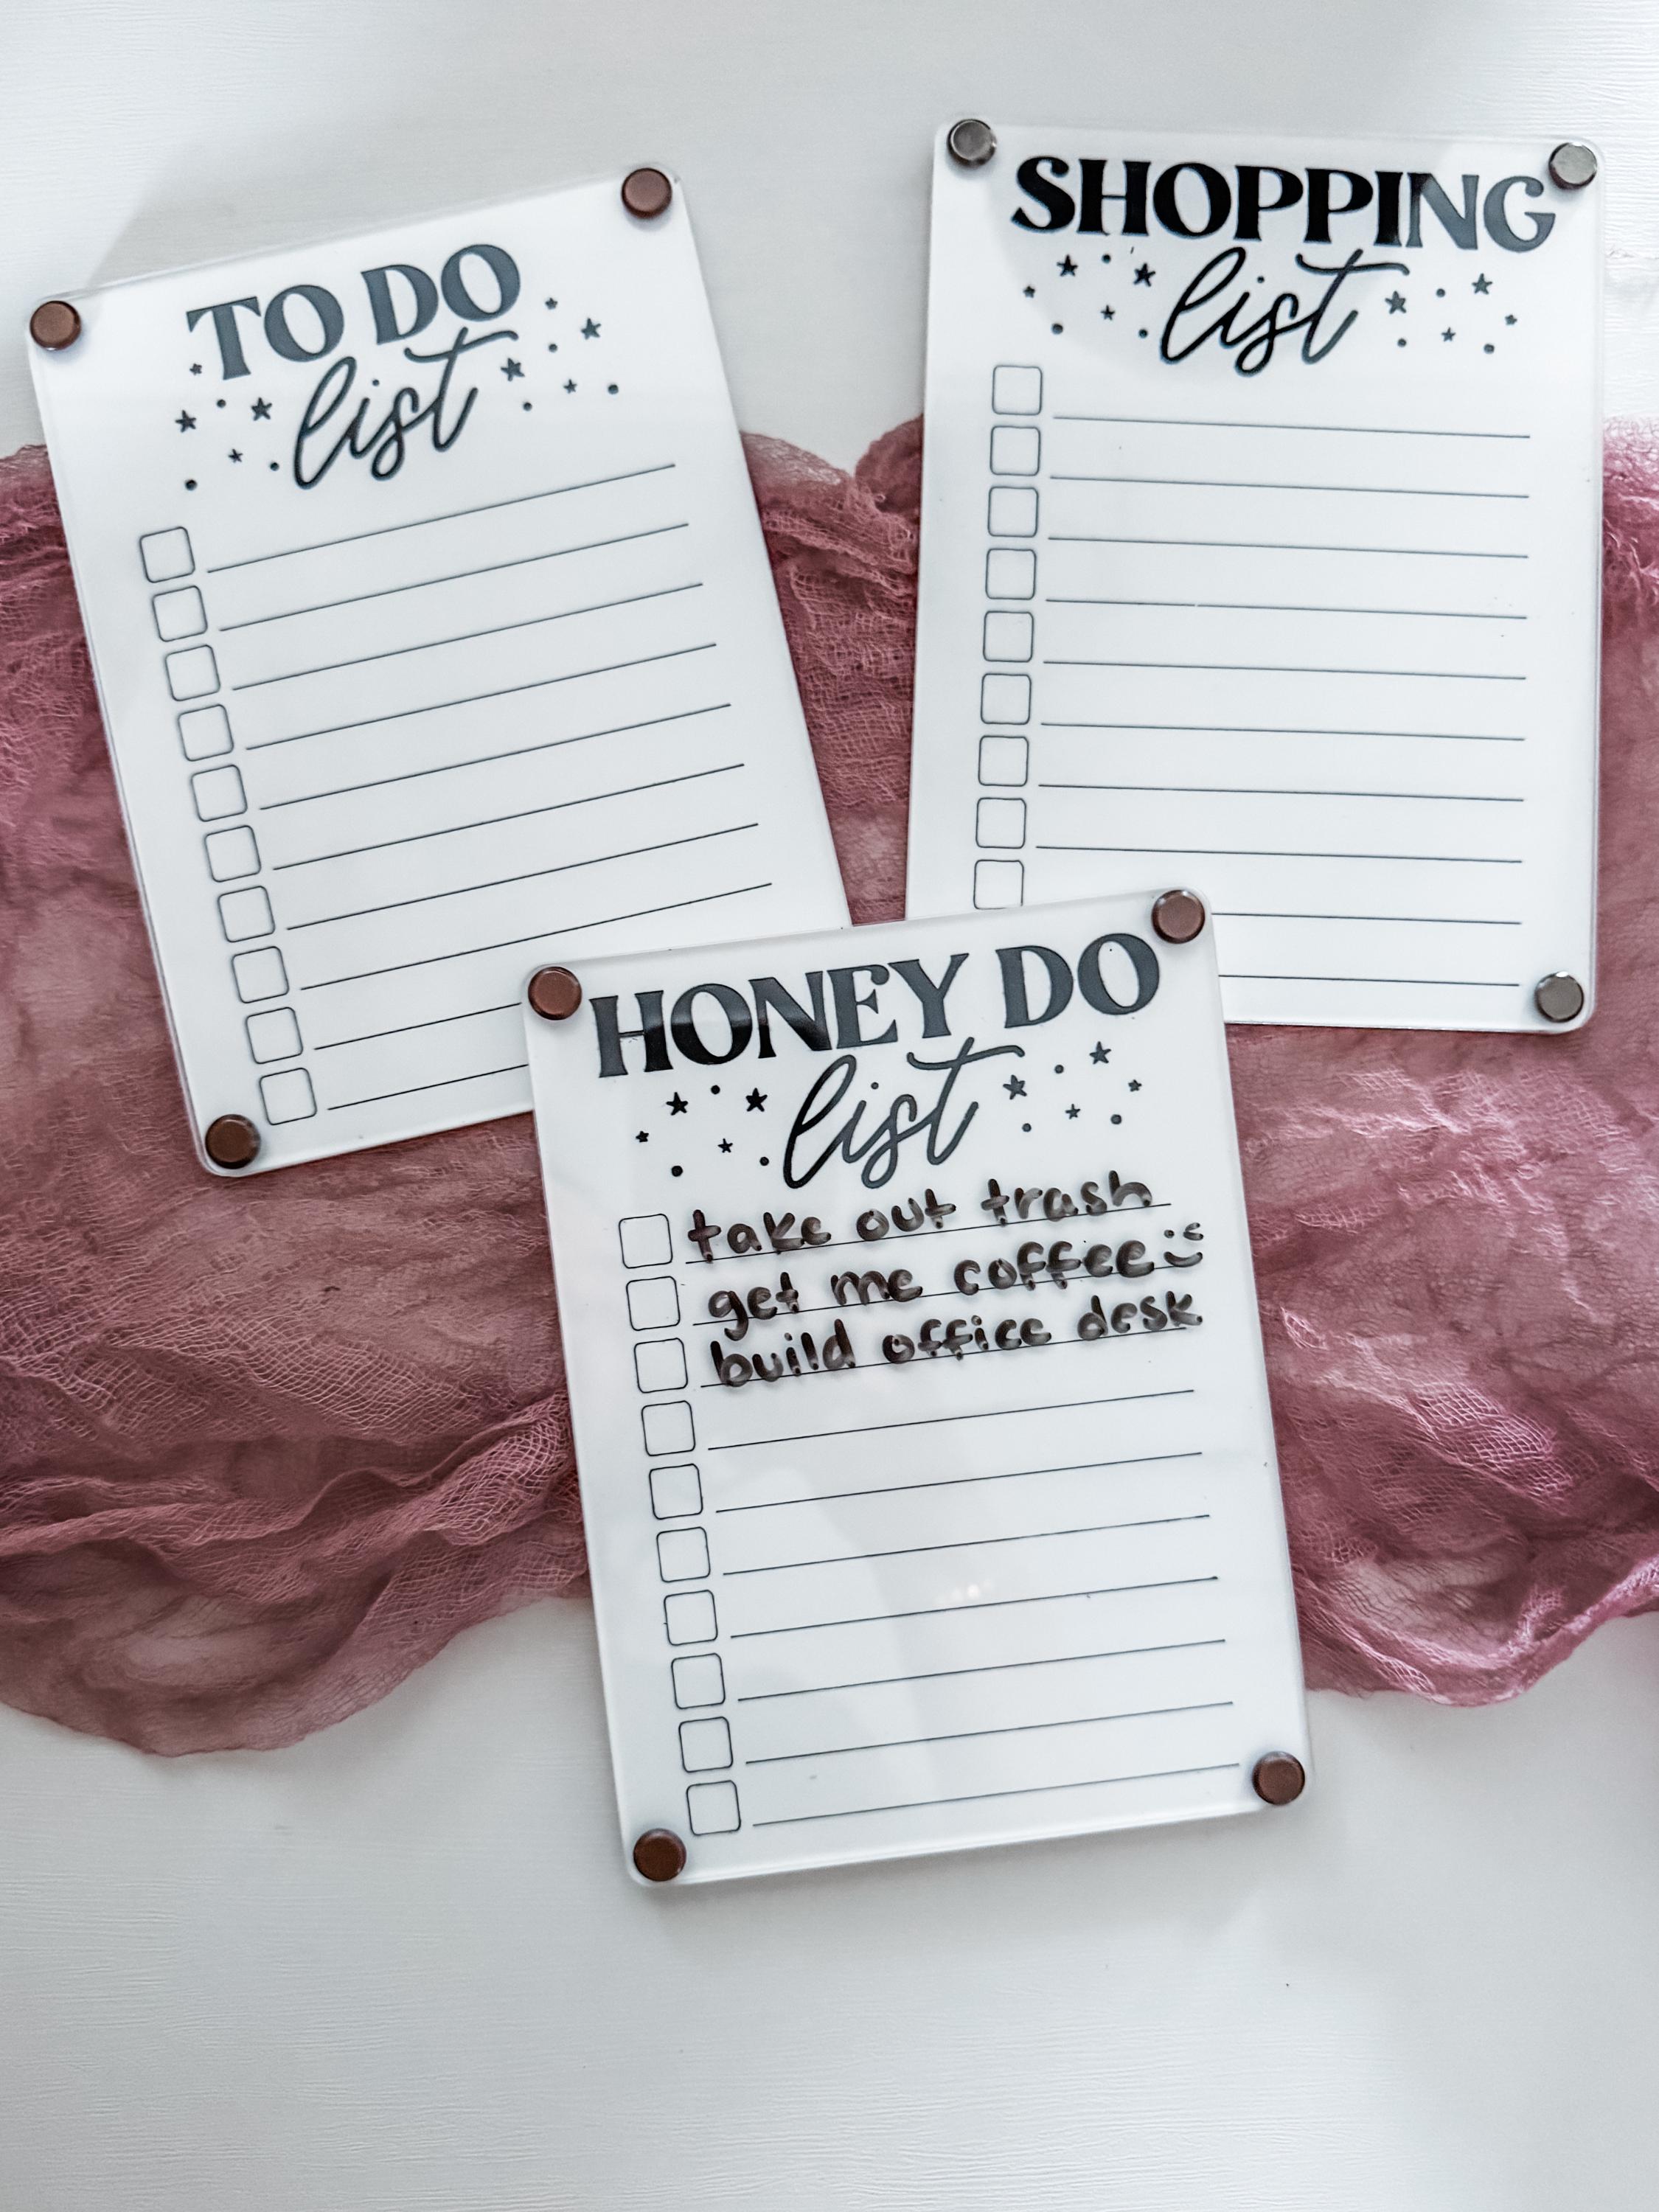 TO DO
list
SHOPPING
list
HONEY DO
list
take out trash
get me coffee :)
build office desk